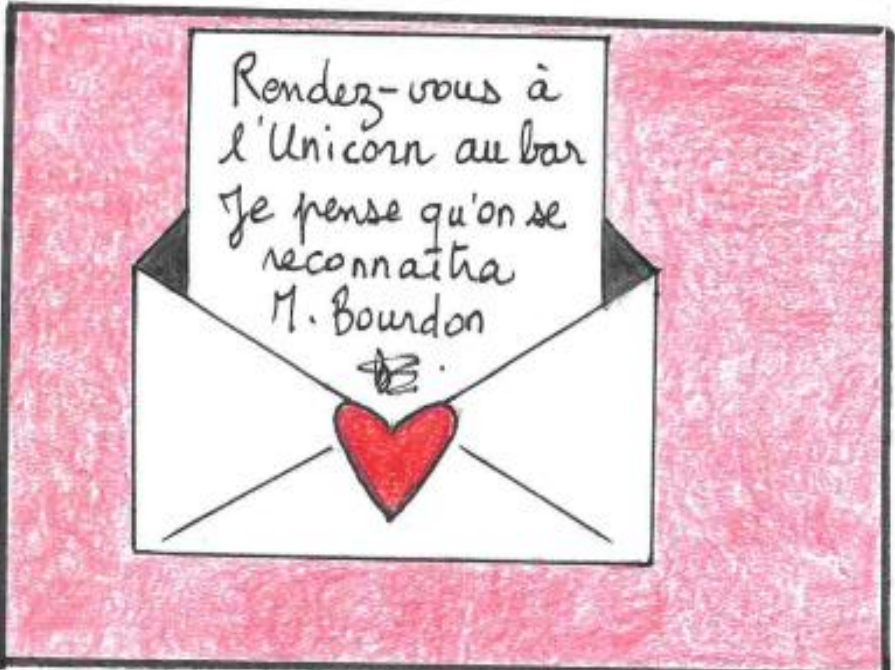 Rendez-vous à
l'Unicorn au bar
Je pense qu'on se
reconnaîtra
M. Bourdon